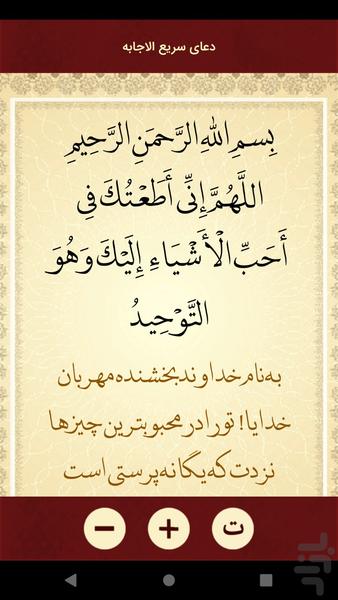 دعای سریع الاجابه
بِسمِ اللهِ الرَّحمَنِ الرَّحِیمِ
اللَّهُمَّ إِنِّی أَطَعْتُكَ فِی
أَحَبِّ الْأَشْیَاءِ إِلَیْكَ وَهُوَ
التَّوْحِیدُ
به نام خداوند بخشنده مهربان
خدایا! تو را در محبوبترین چیزها
نزدت که یگانه پرستی است
− + ت
بازار